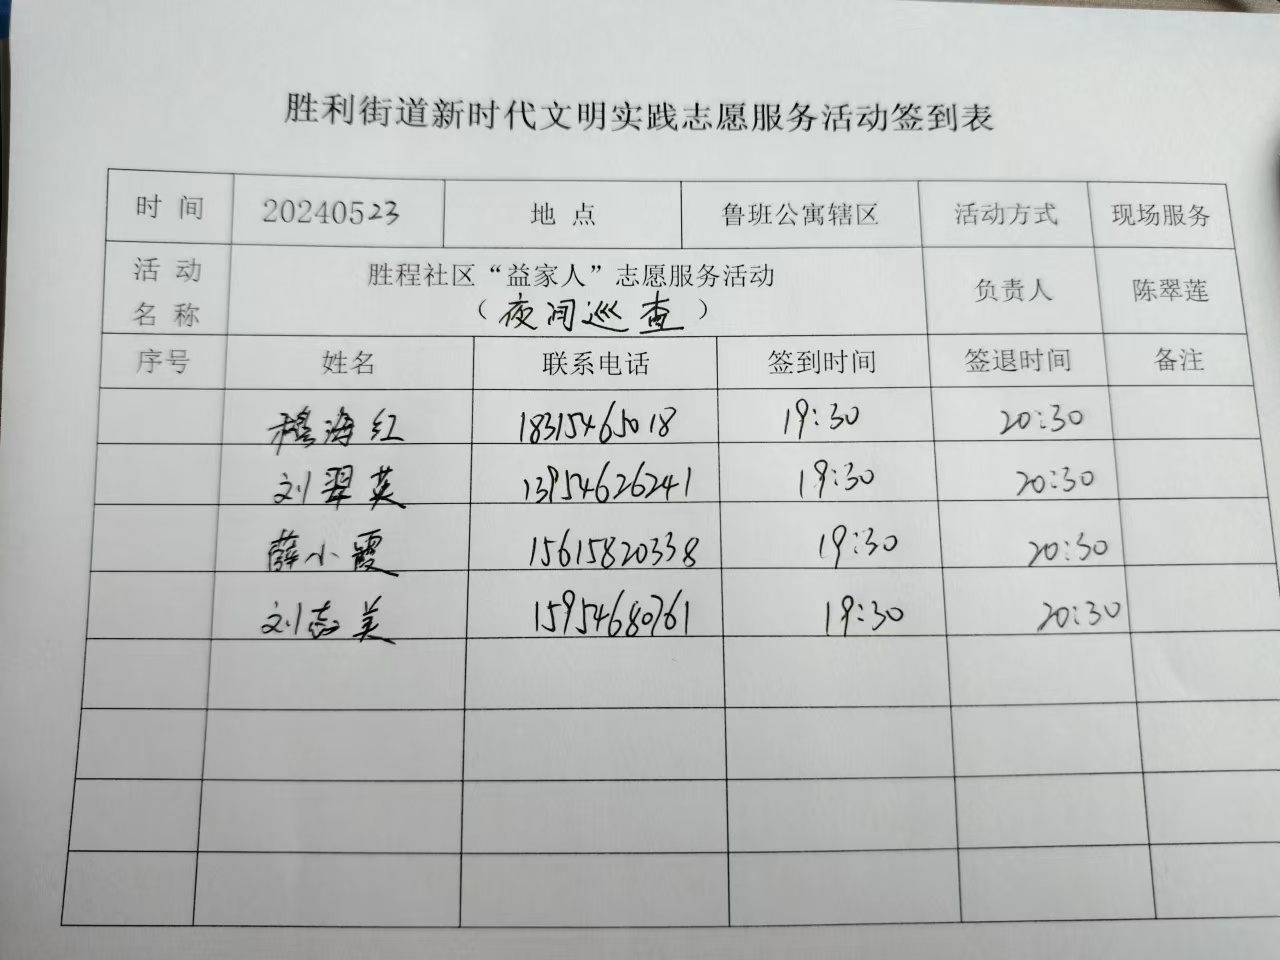 胜利街道新时代文明实践志愿服务活动签到表
时 间 20240523 地 点 鲁班公寓辖区 活动方式 现场服务
活 动 名 称 胜程社区“益家人”志愿服务活动 负责人 陈翠莲
（夜间巡查）
序号 姓名 联系电话 签到时间 签退时间 备注
穆海红 18315465018 19:30 20:30
刘翠英 13954626241 19:30 20:30
薛小霞 15615820338 19:30 20:30
刘志美 15954680761 19:30 20:30